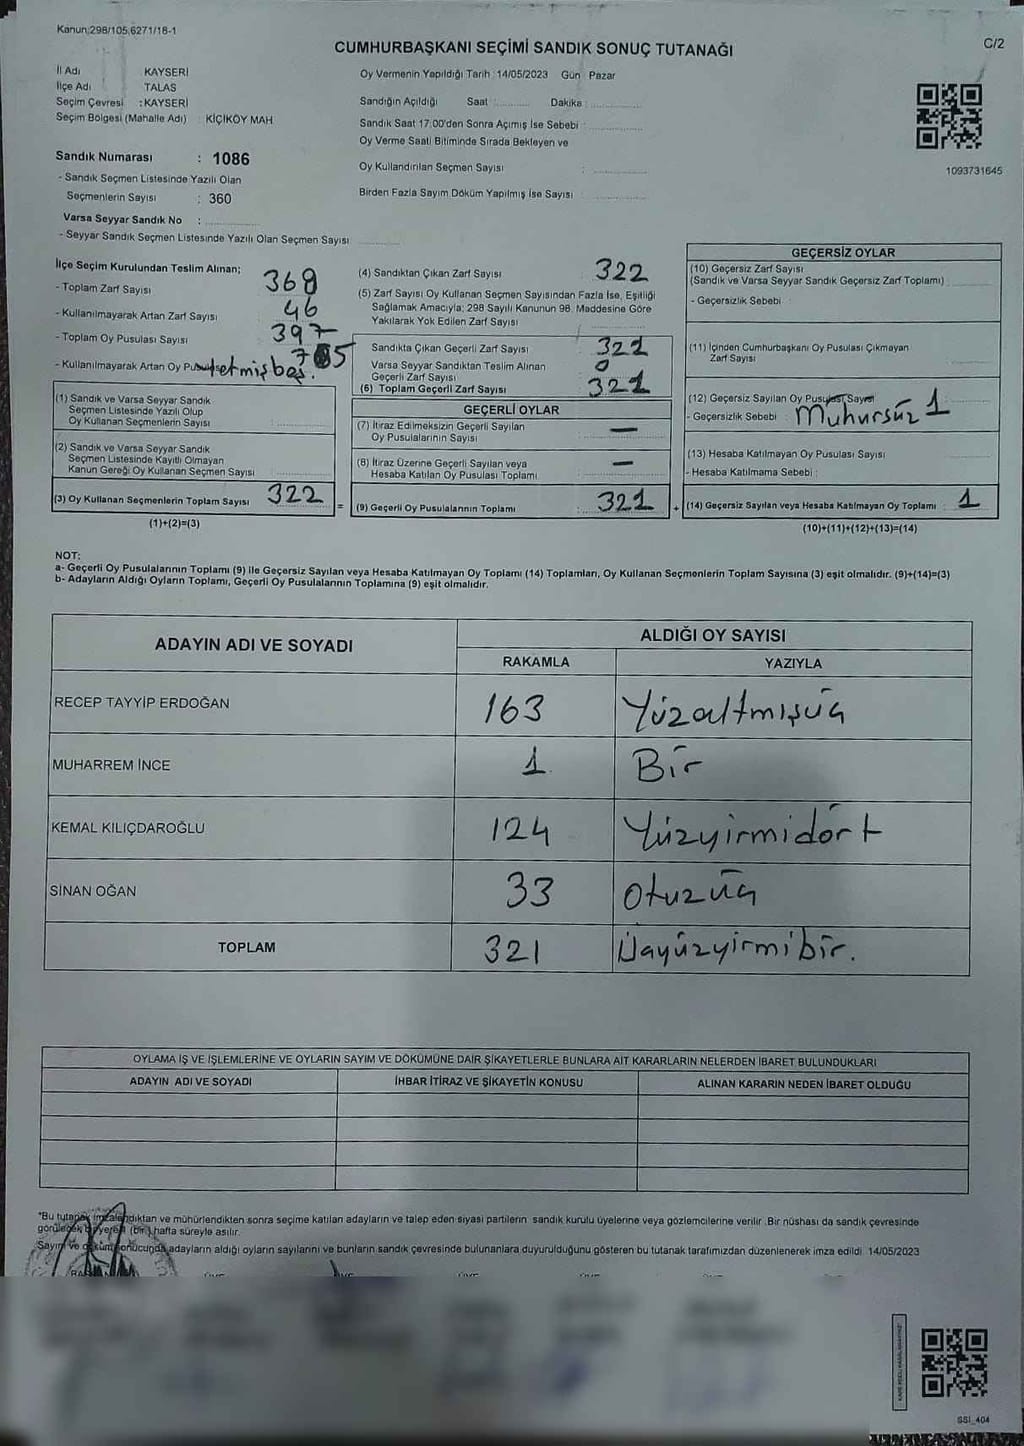 Kanun:298/105,6271/18-1
CUMHURBAŞKANI SEÇİMİ SANDIK SONUÇ TUTANAĞI
C/2
İl Adı KAYSERİ
İlçe Adı TALAS
Seçim Çevresi : KAYSERİ
Seçim Bölgesi (Mahalle Adı) : KİÇİKÖY MAH
Sandık Numarası : 1086
- Sandık Seçmen Listesinde Yazılı Olan
Seçmenlerin Sayısı : 360
Varsa Seyyar Sandık No :
- Seyyar Sandık Seçmen Listesinde Yazılı Olan Seçmen Sayısı
Oy Vermenin Yapıldığı Tarih : 14/05/2023 Gün Pazar
Sandığın Açıldığı Saat : Dakika :
Sandık Saat 17:00'den Sonra Açımış İse Sebebi :
Oy Verme Saati Bitiminde Sırada Bekleyen ve
Oy Kullandırılan Seçmen Sayısı :
Birden Fazla Sayım Döküm Yapılmış İse Sayısı :
1093731645
İlçe Seçim Kurulundan Teslim Alınan;
- Toplam Zarf Sayısı 368
- Kullanılmayarak Artan Zarf Sayısı : 46
- Toplam Oy Pusulası Sayısı : 397
- Kullanılmayarak Artan Oy yetmişbeş. 75
(1) Sandık ve Varsa Seyyar Sandık
Seçmen Listesinde Yazılı Olup
Oy Kullanan Seçmenlerin Sayısı :
(2) Sandık ve Varsa Seyyar Sandık
Seçmen Listesinde Kayıtlı Olmayan
Kanun Gereği Oy Kullanan Seçmen Sayısı
(3) Oy Kullanan Seçmenlerin Toplam Sayısı 322
(1)+(2)=(3)
(4) Sandıktan Çıkan Zarf Sayısı : 322
(5) Zarf Sayısı Oy Kullanan Seçmen Sayısından Fazla İse, Eşitliği
Sağlamak Amacıyla; 298 Sayılı Kanunun 98. Maddesine Göre
Yakılarak Yok Edilen Zarf Sayısı :
Sandıkta Çıkan Geçerli Zarf Sayısı : 321
Varsa Seyyar Sandıktan Teslim Alınan
Geçerli Zarf Sayısı : 0
(6) Toplam Geçerli Zarf Sayısı 321
GEÇERLİ OYLAR
(7) İtiraz Edilmeksizin Geçerli Sayılan
Oy Pusulalarının Sayısı : —
(8) İtiraz Üzerine Geçerli Sayılan veya
Hesaba Katılan Oy Pusulası Toplamı —
=
(9) Geçerli Oy Pusulalarının Toplamı : 321
+
GEÇERSİZ OYLAR
(10) Geçersiz Zarf Sayısı
(Sandık ve Varsa Seyyar Sandık Geçersiz Zarf Toplamı) :
- Geçersizlik Sebebi :
(11) İçinden Cumhurbaşkanı Oy Pusulası Çıkmayan
Zarf Sayısı
(12) Geçersiz Sayılan Oy Pusulası Sayısı 1
- Geçersizlik Sebebi : Mühürsüz
(13) Hesaba Katılmayan Oy Pusulası Sayısı
- Hesaba Katılmama Sebebi :
(14) Geçersiz Sayılan veya Hesaba Katılmayan Oy Toplamı : 1
(10)+(11)+(12)+(13)=(14)
NOT:
a- Geçerli Oy Pusulalarının Toplamı (9) ile Geçersiz Sayılan veya Hesaba Katılmayan Oy Toplamı (14) Toplamları, Oy Kullanan Seçmenlerin Toplam Sayısına (3) eşit olmalıdır. (9)+(14)=(3)
b- Adayların Aldığı Oyların Toplamı, Geçerli Oy Pusulalarının Toplamına (9) eşit olmalıdır.
ADAYIN ADI VE SOYADI ALDIĞI OY SAYISI
RAKAMLA YAZIYLA
RECEP TAYYİP ERDOĞAN 163 Yüzaltmışüç
MUHARREM İNCE 1 Bir
KEMAL KILIÇDAROĞLU 124 Yüzyirmidört
SİNAN OĞAN 33 Otuzüç
TOPLAM 321 Üçyüzyirmibir.
OYLAMA İŞ VE İŞLEMLERİNE VE OYLARIN SAYIM VE DÖKÜMÜNE DAİR ŞİKAYETLERLE BUNLARA AİT KARARLARIN NELERDEN İBARET BULUNDUKLARI
ADAYIN ADI VE SOYADI İHBAR İTİRAZ VE ŞİKAYETİN KONUSU ALINAN KARARIN NEDEN İBARET OLDUĞU
*Bu tutanak imzalandıktan ve mühürlendikten sonra seçime katılan adayların ve talep eden siyasi partilerin sandık kurulu üyelerine veya gözlemcilerine verilir. Bir nüshası da sandık çevresinde
görülecek bir yere (bir) hafta süreyle asılır.
Sayım ve döküm sonucunda adayların aldığı oyların sayılarını ve bunların sandık çevresinde bulunanlara duyurulduğunu gösteren bu tutanak tarafımızdan düzenlenerek imza edildi. 14/05/2023
SSI_404